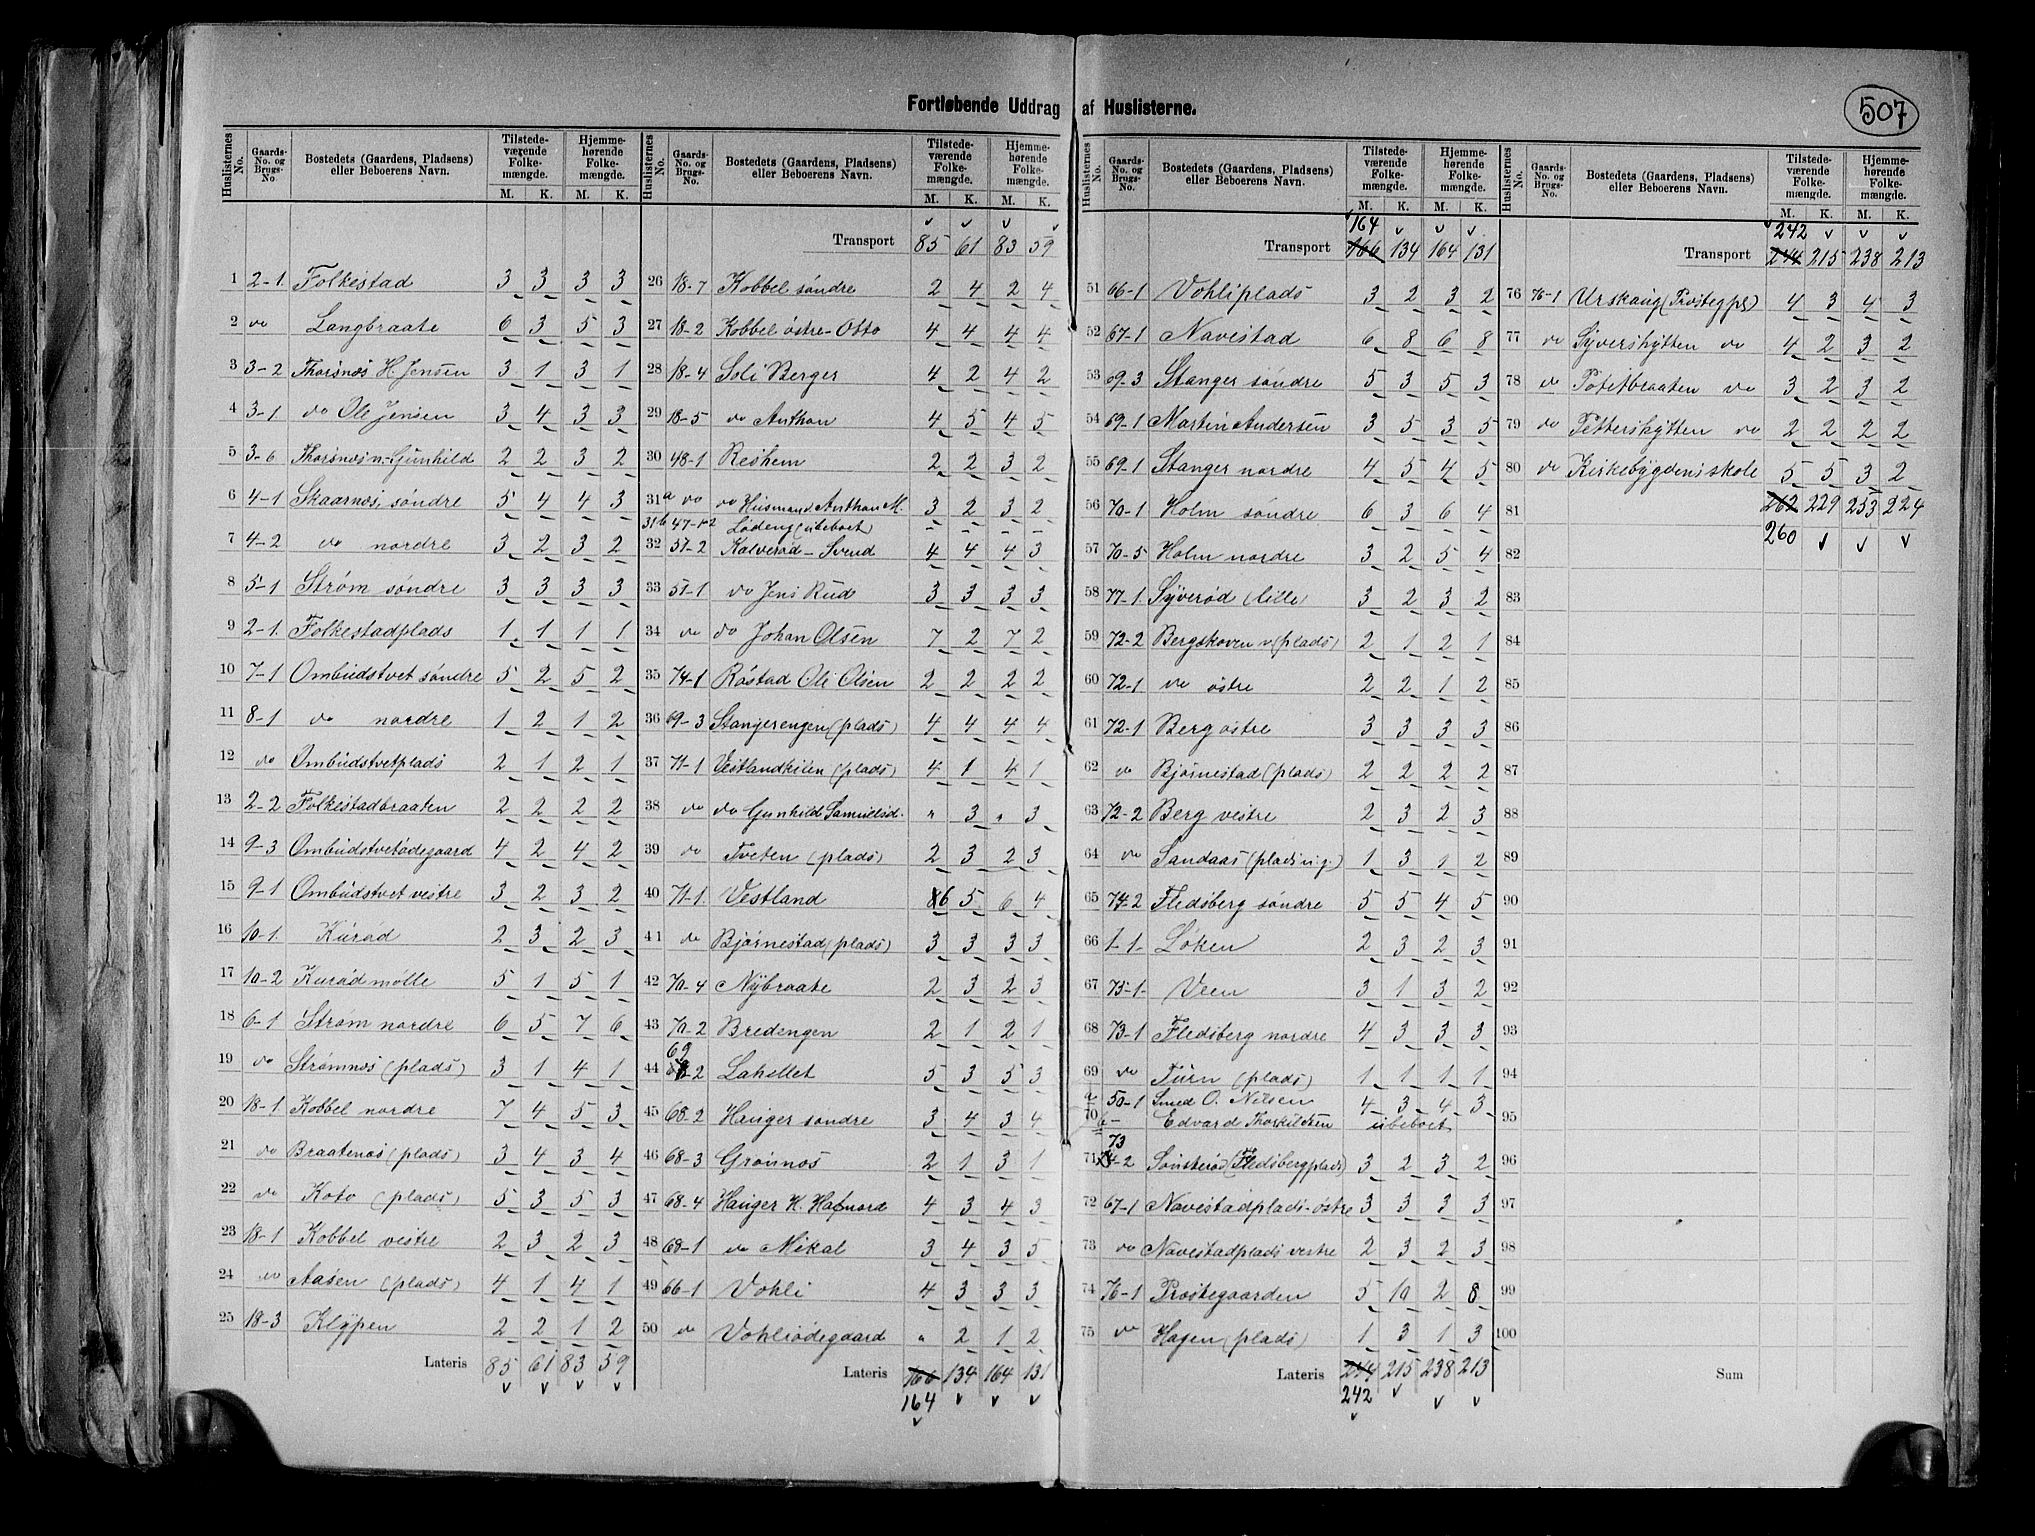 Fortløbende Uddrag af Huslisterne.
507
Huslisternes No. | Gaards-No. og Brugs-No. | Bostedets (Gaardens, Pladsens) eller Beboerens Navn. | Tilstedeværende Folkemængde. M. K. | Hjemmehørende Folkemængde. M. K.
1 2-1. Folkestad 3 3 3 3
2 do Langbraate 6 3 5 3
3 3-2 Thorsnæs H. Jensen 3 1 3 1
4 3-1. do Ole Jensen 3 4 3 3
5 3-6 Thorsnæs n.-Gunhild 2 2 3 2
6 4-1 Skaarnæs, søndre 5 4 4 3
7 4-2 do nordre 3 2 3 2
8 5-1 Strøm søndre 3 3 3 3
9 2-1. Folkestadplads 1 1 1 1
10 7-1 Ombudstvet søndre 5 2 5 2
11 8-1 do nordre 1 2 1 2
12 do Ombudstvetplads 2 1 2 1
13 2-2 Folkestadbraaten 2 2 2 2
14 9-3 Ombudstvetødegaard 4 2 4 2
15 9-1 Ombudstvet vestre 3 2 3 2
16 10-1. Kurød 2 3 2 3
17 10-2 Kurød mølle 5 1 5 1
18 6-1 Strøm nordre 6 5 7 6
19 do Strømnæs (plads) 3 1 4 1
20 18-1 Kobbel nordre 7 4 5 3
21 do Braatenæs (plads) 3 4 3 4
22 do Koto (plads) 5 3 5 3
23 18-1 Kobbel vestre 2 3 2 3
24 do Aasen (plads) 4 1 4 1
25 18-3 Klypen 2 2 1 2
Lateris 85 61 83 59
Huslisternes No. | Gaards-No. og Brugs-No. | Bostedets (Gaardens, Pladsens) eller Beboerens Navn. | Tilstedeværende Folkemængde. M. K. | Hjemmehørende Folkemængde. M. K.
Transport 85 61 83 59
26 18-7 Kobbel søndre 2 4 2 4
27 18-2 Kobbel østre-Otto 4 4 4 4
28 18-4 Soli Berger 4 2 4 2
29 18-5 do Anthon 4 5 4 5
30 48-1 Reshem 2 2 3 2
31a do do Husmand Anthon M. 3 2 3 2
31b 47-1+2 Lødeng (ubeboet) - - - -
32 57-2 Kalverød - Svend 4 4 4 3
33 57-1 do Jens Rud 3 3 3 3
34 do do Johan Olsen 7 2 7 2
35 74-1 Røstad Ole Olsen 2 2 2 2
36 69-3 Stangerengen (plads) 4 4 4 4
37 71-1 Vestlandkilen (plads) 4 1 4 1
38 do do Gunhild Samuelsd. " 3 " 3
39 do Tveten (plads) 2 3 2 3
40 71-1. Vestland 6 5 6 4
41 do Bjørnestad (plads) 3 3 3 3
42 70-4 Nybraate 2 3 2 3
43 70-2 Bredengen 2 1 2 1
44 69-2 Lahellet 5 3 5 3
45 68-2 Hauger søndre 3 4 3 4
46 68-3 Grønnæs 2 1 3 1
47 68-4 Hauger H. Hafnord 4 3 4 3
48 68-1 do Mikal 3 4 3 5
49 66-1 Vohli 4 3 3 3
50 do Vohliødegaard " 2 1 2
Lateris 166 134 164 131
164
Huslisternes No. | Gaards-No. og Brugs-No. | Bostedets (Gaardens, Pladsens) eller Beboerens Navn. | Tilstedeværende Folkemængde. M. K. | Hjemmehørende Folkemængde. M. K.
164
Transport 166 134 164 131
51 66-1 Vohliplads 3 2 3 2
52 67-1 Navestad 6 8 6 8
53 69-3 Stanger søndre 5 3 5 3
54 69-1 Martin Andersen 3 5 3 5
55 69-1 Stanger nordre 4 5 4 5
56 70-1 Holm søndre 6 3 6 4
57 70-5 Holm nordre 3 2 5 4
58 77-1. Syverød (lille) 3 2 3 2
59 72-2 Bergskoven v (plads) 2 1 2 1
60 72-1 do østre 2 2 1 2
61 72-1 Berg østre 3 3 3 3
62 do Bjørnestad (plads) 2 2 2 2
63 72-2 Berg vestre 2 3 2 3
64 do Sandaas (plads n.g.) 1 3 1 2
65 74-2 Fledsberg søndre 5 5 4 5
66 1-1. Løken 2 3 2 3
67 75-1. Veen 3 1 3 2
68 73-1 Fledsberg nordre 4 3 3 3
69 do Turn (plads) 1 1 1 1
70 a 50-1 Smed O. Nilsen 4 3 4 3
b - Edvard Thorkildsen ubeboet
71 73-2 Sønsterød (Fledsbergplads) 3 2 3 2
72 67-1 Navestadplads-østre 3 3 3 3
73 do Navestadplads vestre 2 3 2 3
74 76-1 Præstegaarden 5 10 2 8
75 do Hagen (plads) 1 3 1 3
Lateris 244 215 238 213
242
Huslisternes No. | Gaards-No. og Brugs-No. | Bostedets (Gaardens, Pladsens) eller Beboerens Navn. | Tilstedeværende Folkemængde. M. K. | Hjemmehørende Folkemængde. M. K.
242
Transport 244 215 238 213
76 76-1 Urskaug (Præstegpl.) 4 3 4 3
77 do Syverskytten do 4 2 3 2
78 do Potetbraaten do 3 2 3 2
79 do Petterskytten do 2 2 2 2
80 do Kirkebygdens skole 5 5 3 2
81 262 229 253 224
260
82
83
84
85
86
87
88
89
90
91
92
93
94
95
96
97
98
99
100
Sum